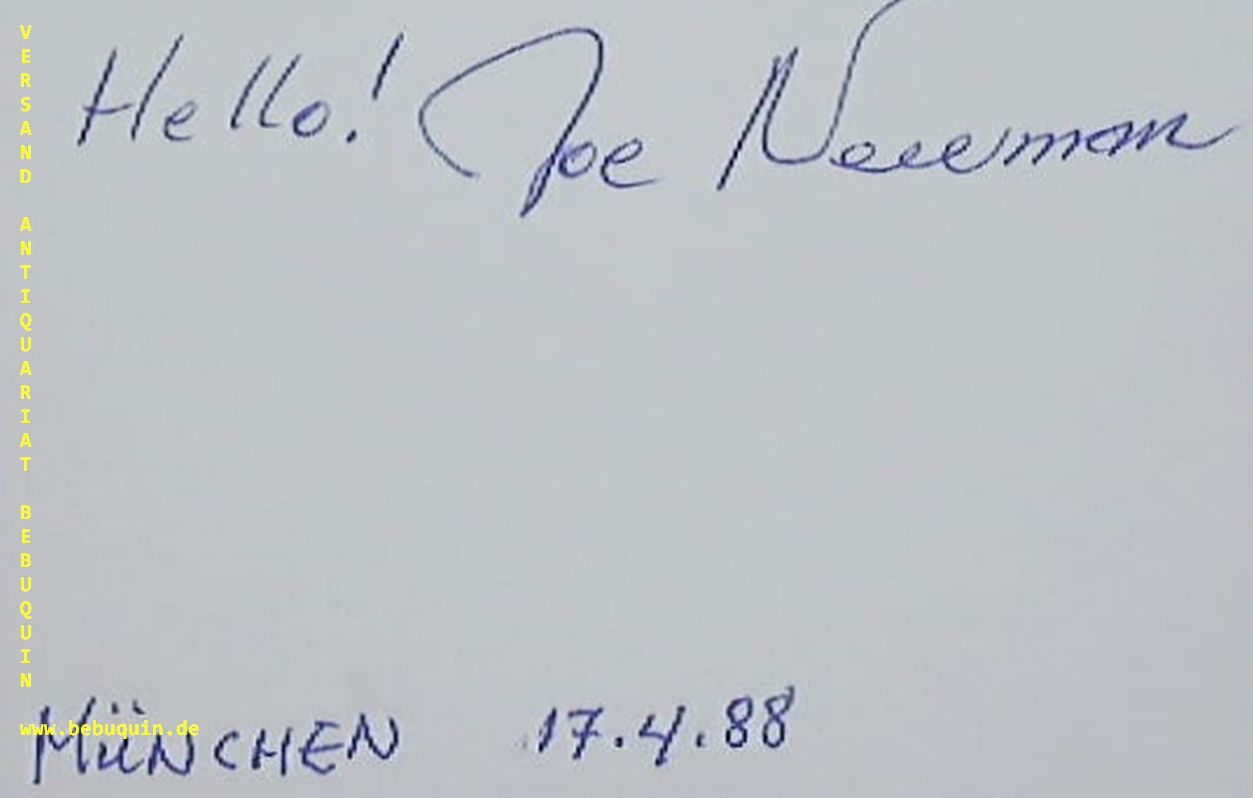 Hello! Joe Newman
MÜNCHEN 17.4.88
VERSAND ANTIQUARIAT BEBUQUIN
www.bebuquin.de